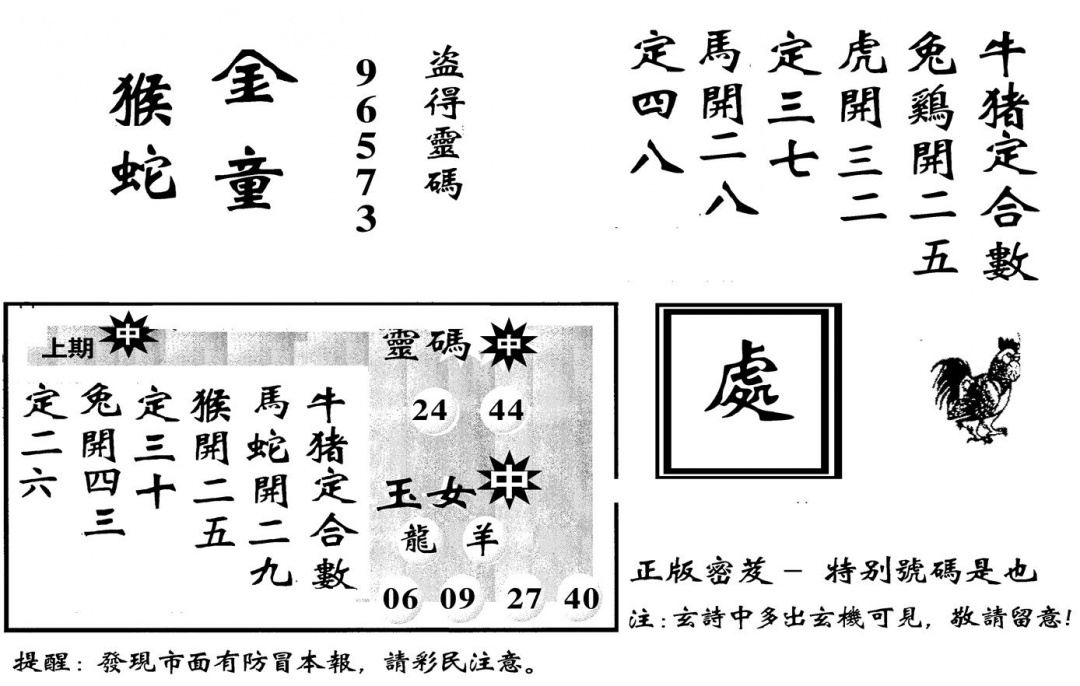 牛猪定合數
兔鷄開二五
虎開三二
定三七
馬開二八
定四八
盗得靈碼
96573
金童
猴蛇
上期 中
牛猪定合數
馬蛇開二九
猴開二五
定三十
兔開四三
定二六
靈碼 中
24 44
玉女 中
龍 羊
06 09 27 40
處
正版密芨－特别號碼是也
注:玄詩中多出玄機可見，敬請留意!
提醒：發現市面有防冒本報，請彩民注意。